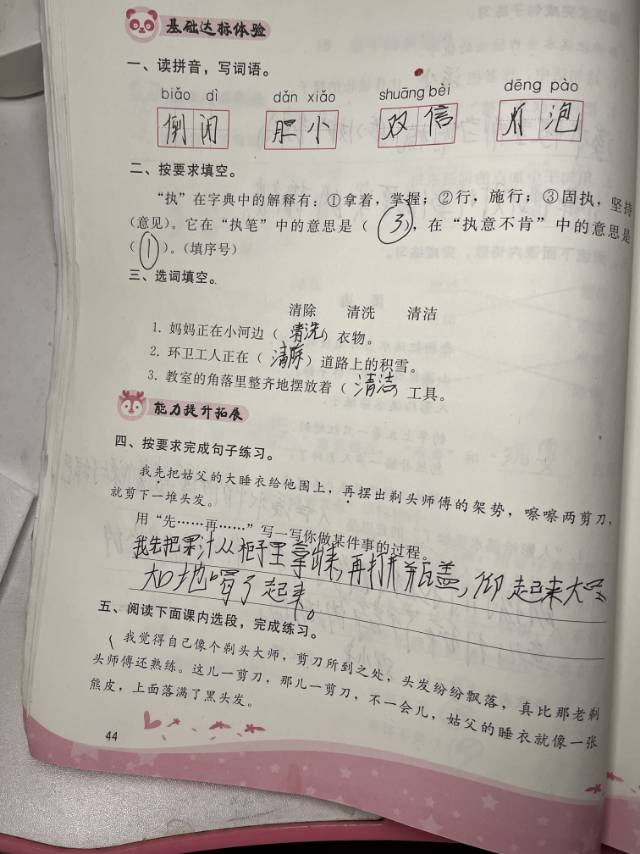 基础达标体验
一、读拼音，写词语。
biǎo dì dǎn xiǎo shuāng bèi dēng pào
胆小 双倍 灯泡
二、按要求填空。
“执”在字典中的解释有：①拿着，掌握；②行，施行；③固执，坚持
（意见）。它在“执笔”中的意思是（ 3 ），在“执意不肯”中的意思是
（ 1 ）。（填序号）
三、选词填空。
清除 清洗 清洁
1. 妈妈正在小河边（ 清洗 ）衣物。
2. 环卫工人正在（ 清除 ）道路上的积雪。
3. 教室的角落里整齐地摆放着（ 清洁 工具。
能力提升拓展
四、按要求完成句子练习。
我先把姑父的大睡衣给他围上，再摆出剃头师傅的架势，嚓嚓两剪刀，
就剪下一堆头发。
用“先……再……”写一写你做某件事的过程。
我先把果汁从柜子里拿出来，再打开瓶盖，仰起来大
地喝了起来。
五、阅读下面课内选段，完成练习。
我觉得自己像个剃头大师，剪刀所到之处，头发纷纷飘落，真比那老剃
头师傅还熟练。这儿一剪刀，那儿一剪刀，不一会儿，姑父的睡衣就像一张
熊皮，上面落满了黑头发。
44